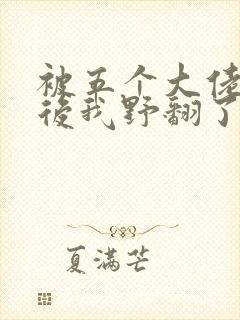 被五个大佬
後我野翻了
夏满芒